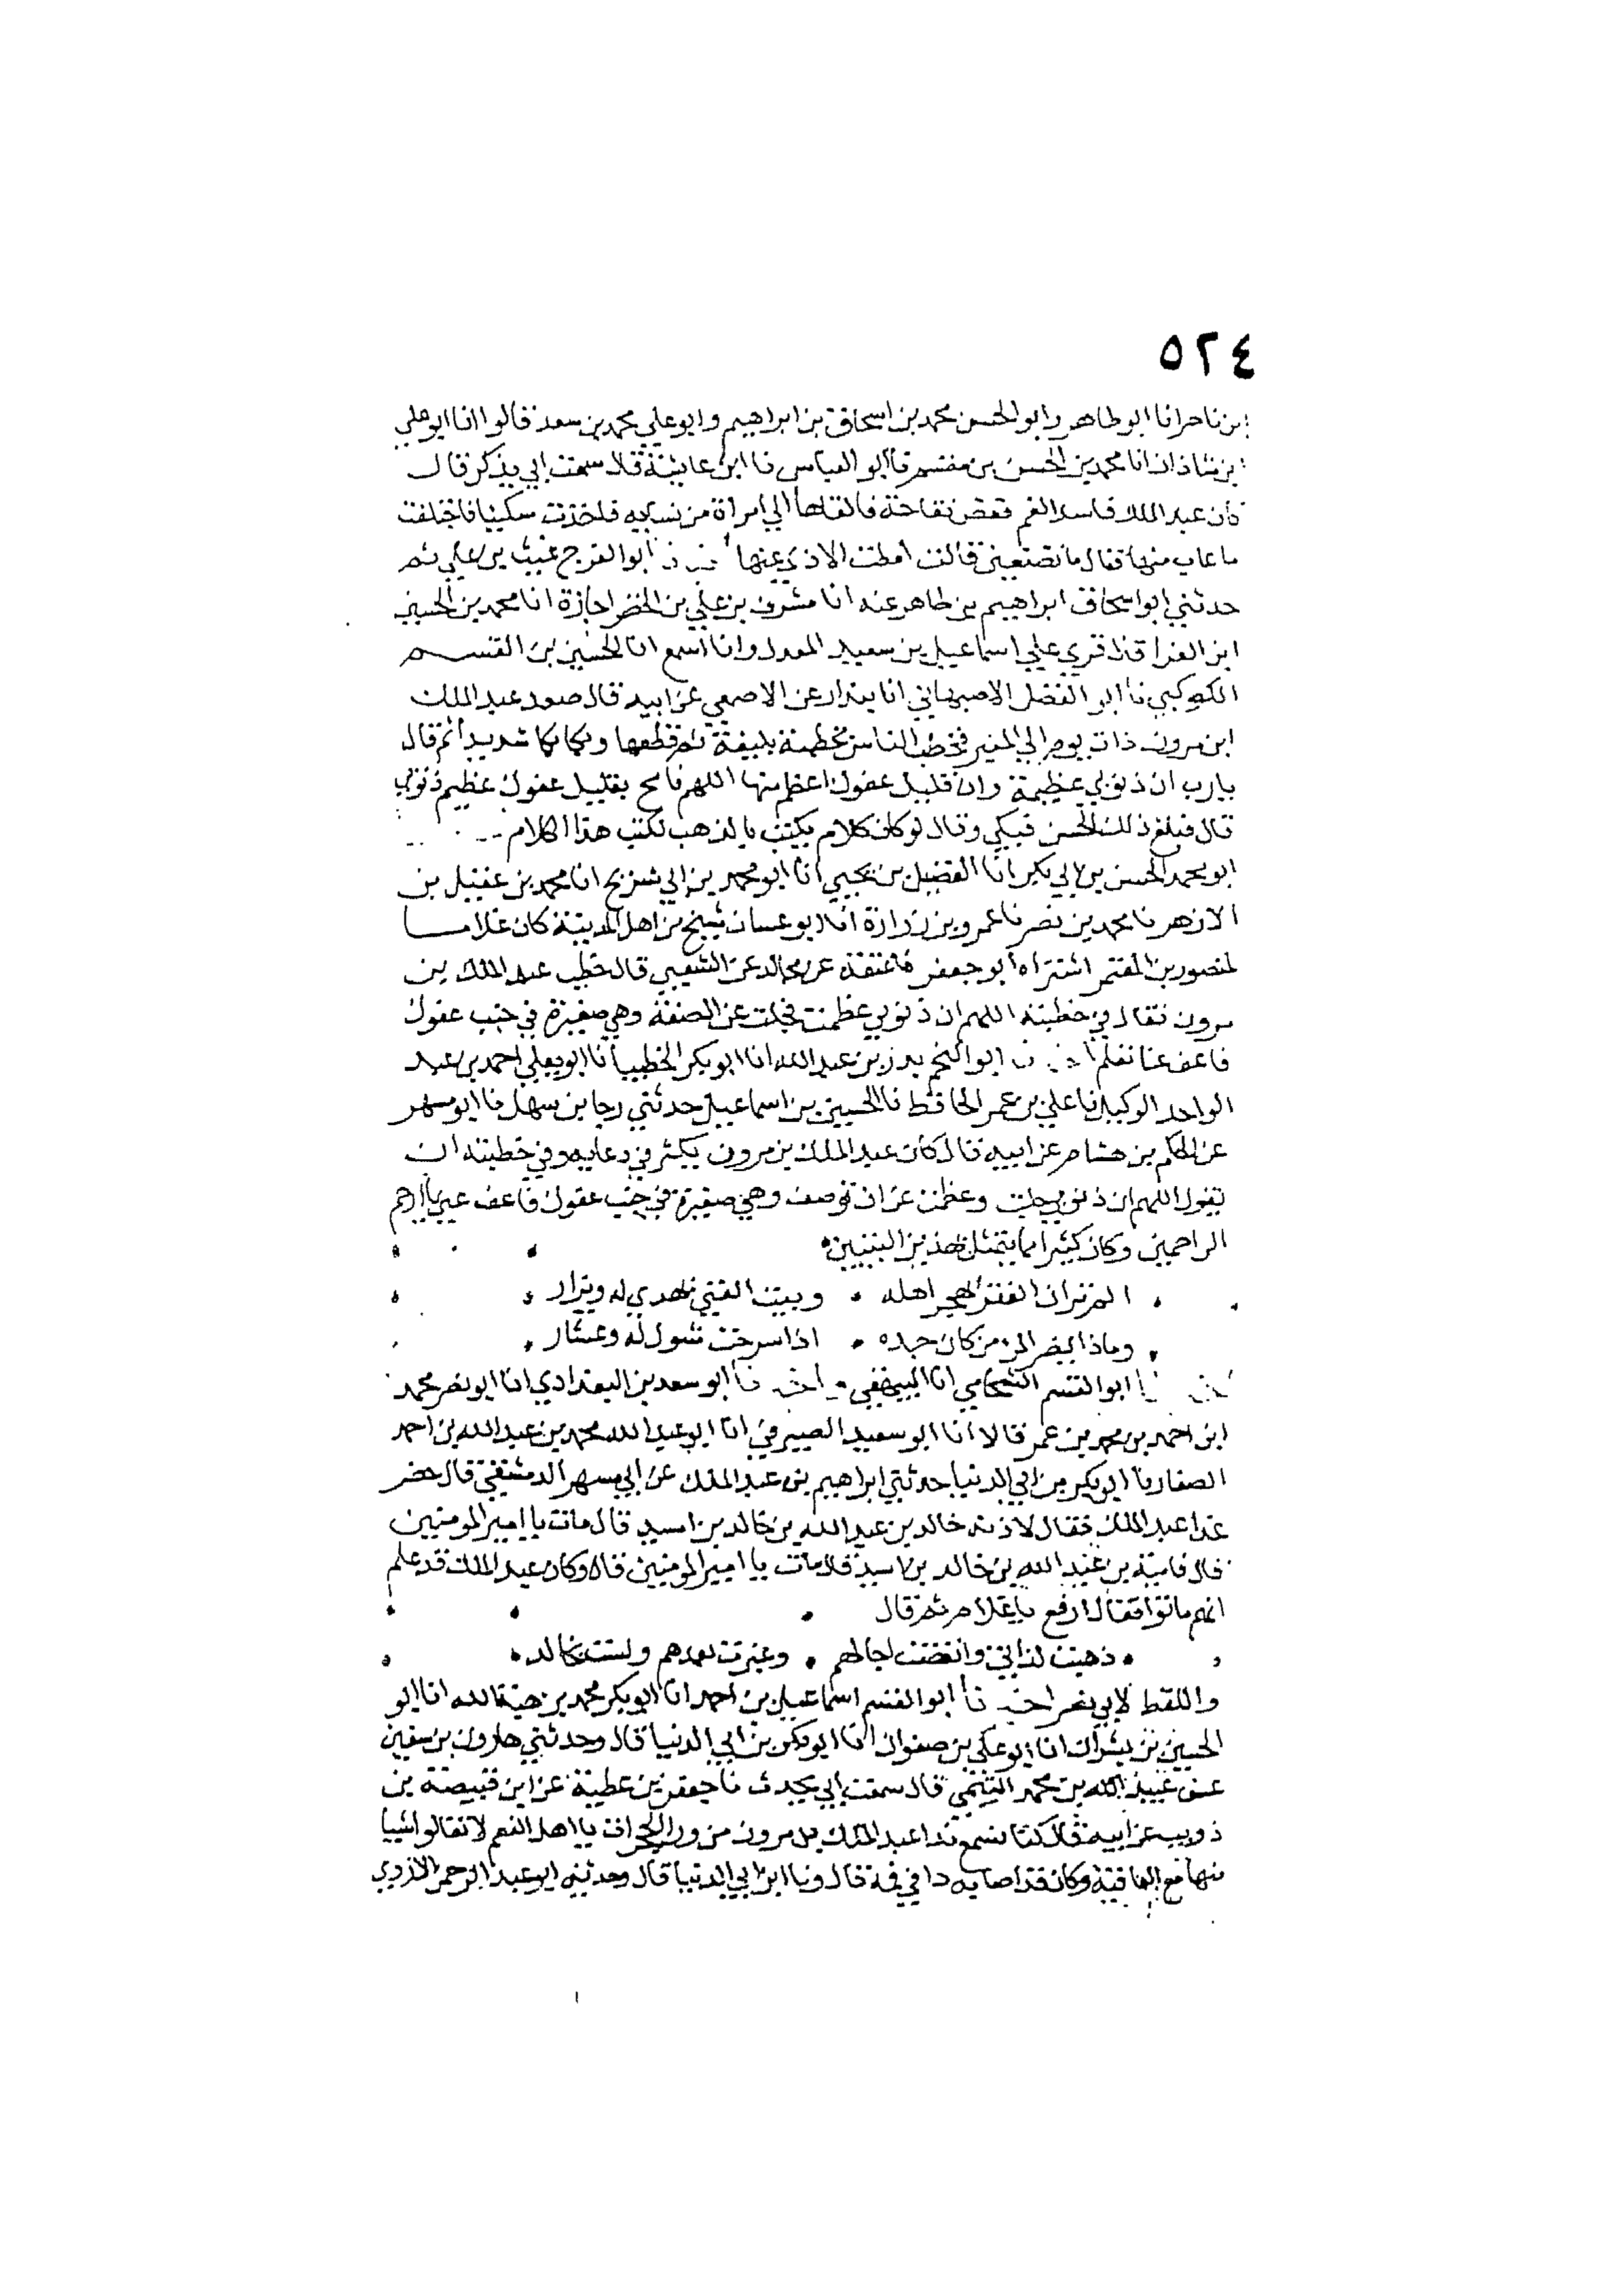 ٥٢٤
انا ابو طاهر وابو الحسن محمد بن اسحاق بن ابراهيم وابو علي محمد بن سعد قالوا انا ابو علي
بن شاذان انا محمد بن الحسن بن مقسم نا ابو العباس نا ابن عايشة قال سمعت ابي يذكر قال
كان عبد الملك فاسد الفم فعض تفاحة فالقاها الي امراة من نسايه فاخذت سكينا فاختلفت
ما عاب منها فقال ما تصنعين قالت امطت الاذي عنها ابو الفرج غيث بن علي ثم
حدثني ابو اسحاق ابراهيم بن طاهر عنه انا مشرف بن علي بن الخضر اجازة انا محمد بن الحسين
ابن الفرا قال قري علي اسماعيل بن سعيد المعدل وانا اسمع انا الحسين بن القسم
الكوكبي نا ابو الفضل الاصبهاني انا بندار عن الاصمعي عن ابيه قال صعد عبد الملك
ابن مرون ذات يوم الي المنبر فخطب الناس بخطبة بليغة ثم قطعها وبكا بكا شديدا ثم قال
يارب ان ذنوبي عظيمة وان قليل عفوك اعظم منها اللهم فامح بقليل عفوك عظيم ذنوبي
قال فبلغ ذلك الحسن فبكي وقال لو كان كلام يكتب بالذهب لكتب هذا الكلام
ابو محمد الحسن بن ابي بكر انا الفضيل بن يحيي انا ابو محمد بن ابي شريح انا محمد بن عقيل بن
الازهر نا محمد بن نصر نا عمرو بن زرارة انا ابو عسان شيخ من اهل المدينة كان غلاما
لمنصور بن المعتمر اشتراه ابو جعفر فاعتقه عن مجالد عن الشعبي قال خطب عبد الملك بن
مرون فقال في خطبته اللهم ان ذنوبي عظمت فجلت عن الصفة وهي صغيرة في جنب عفوك
فاعف عنا ابو النجم بدر بن عبد الله انا ابو بكر الخطيب انا ابو يعلي احمد بن عبد
الواحد الوكيل نا علي بن عمر الحافظ نا الحسين بن اسماعيل حدثني رجا بن سهل نا ابو مسهر
عن الحكم بن هشام عن ابيه قال كان عبد الملك بن مرون يكثر في دعايه وفي خطبته ان
يقول اللهم ان ذنوبي جلت وعظمت عن ان توصف وهي صغيرة في جنب عفوك فاعف عني يا ارحم
الراحمين وكان كثيرا ما يتمثل بهذين البيتين
الم تر ان الفقر يهجر اهله وبيت الغني يهدي له ويزار
وماذا يضر المرء من كان جده اذا سرحت شول له وعشار
ابو القسم الشحامي انا البيهقي نا ابو سعد بن البغدادي انا ابو نصر محمد
ابن احمد بن محمد بن عمر قالا انا ابو سعيد الصيرفي انا ابو عبد الله محمد بن عبد الله بن احمد
الصفار نا ابو بكر بن ابي الدنيا حدثني ابراهيم بن عبد الملك عن ابي مسهر الدمشقي قال حضر
غدا عبد الملك فقال لاذنه خالد بن عبد الله بن خالد بن اسيد قال مات يا امير المومنين
قال فامية بن عبد الله بن خالد بن اسيد قال مات يا امير المومنين قال وكان عبد الملك قد علم
انهم ماتوا فقال ارفع يا غلام ثم قال
ذهبت لذاتي وانقضت اجالهم وغبرت بعدهم ولست بخالد
واللفظ لابي نصر نا ابو القسم اسماعيل بن احمد انا ابو بكر محمد بن هبة الله انا ابو
الحسين بن بشران انا ابو علي بن صفوان انا ابو بكر بن ابي الدنيا قال وحدثني هارون بن سفين
عن عبيد الله بن محمد التيمي قال سمعت ابي يحدث نا جعفر بن عطية عن ابن قبيصة بن
ذويب عن ابيه قال كنا نسمع ندا عبد الملك بن مرون من ورا الحجرات يا اهل النعم لا تقالوا شيا
منها مع العافية وكان قد اصابه دا في فمه قال ونا ابن ابي الدنيا قال وحدثني ابو عبد الرحمن الازدي